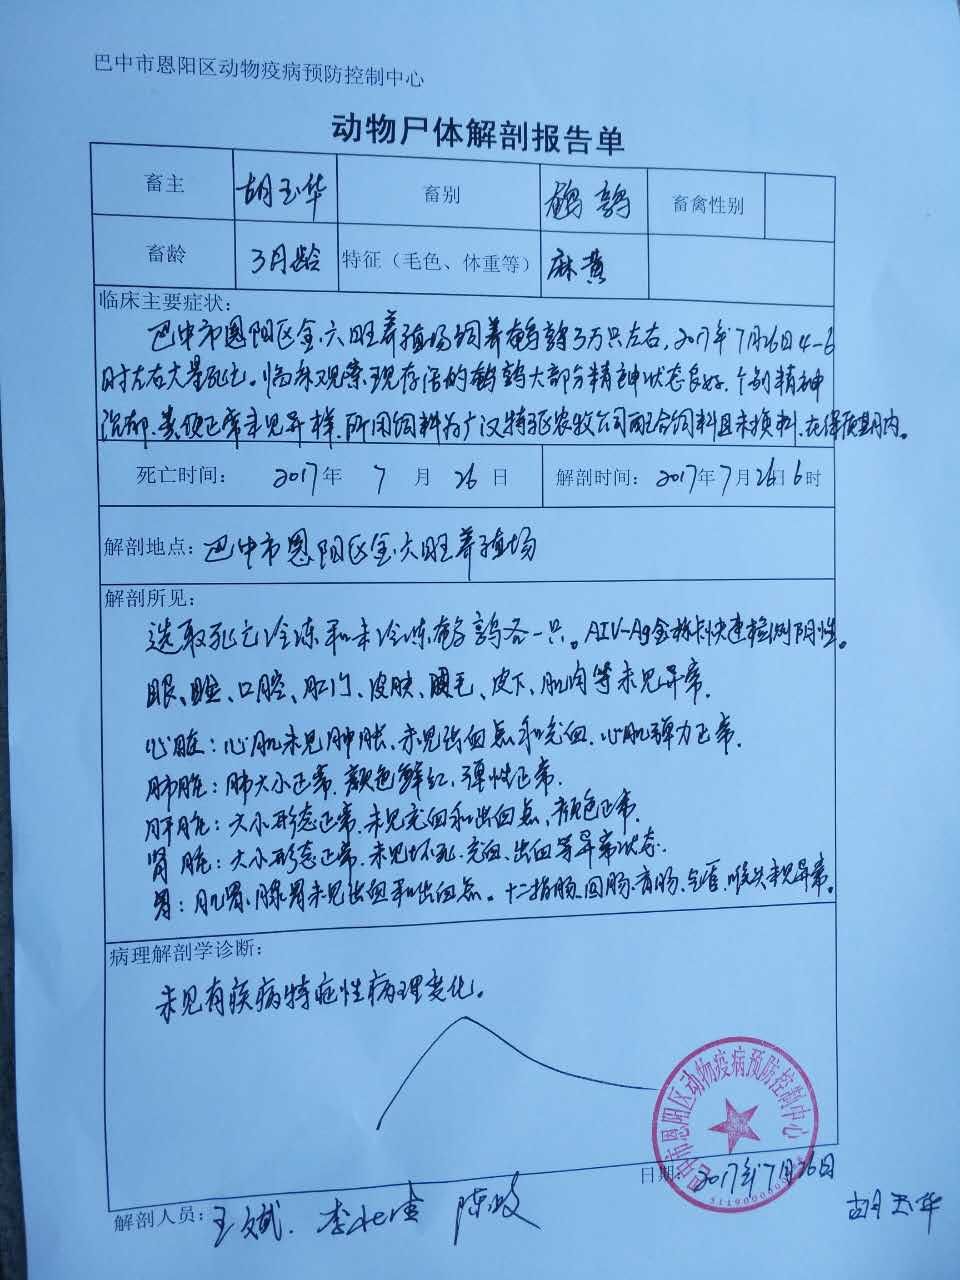 巴中市恩阳区动物疫病预防控制中心
动物尸体解剖报告单
畜主 胡玉华 畜别 鹌鹑 畜禽性别
畜龄 3月龄 特征（毛色、体重等） 麻黄
临床主要症状：
巴中市恩阳区金六旺养殖场饲养鹌鹑3万只左右，2017年7月26日4-6
时左右大量死亡。临床观察现存活的鹌鹑大部分精神状态良好，个别精神
沉郁，粪便正常未见异样，所用饲料为广汉特驱农牧公司配合饲料且未换料，在保质期内。
死亡时间： 2017年 7 月 26 日 解剖时间： 2017年7月26日6时
解剖地点：巴中市恩阳区金六旺养殖场
解剖所见：
选取死亡冷冻和未冷冻鹌鹑各一只。AIV-Ag金标卡快速检测阴性。
眼、鼻、口腔、肛门、皮肤、腿毛、皮下、肌肉等未见异常。
心脏：心肌未见肿胀，未见出血点和充血，心肌弹力正常。
肺脏：肺大小正常，颜色鲜红，弹性正常。
肝脏：大小形态正常，未见充血和出血点，颜色正常。
肾脏：大小形态正常，未见坏死、充血、出血等异常状态。
胃：肌胃、腺胃未见出血和出血点。十二指肠、回肠、盲肠、气管、喉头未见异常。
病理解剖学诊断：
未见有疾病特征性病理变化。
巴中市恩阳区动物疫病预防控制中心
日期：2017年7月26日
解剖人员：王斌
胡玉华